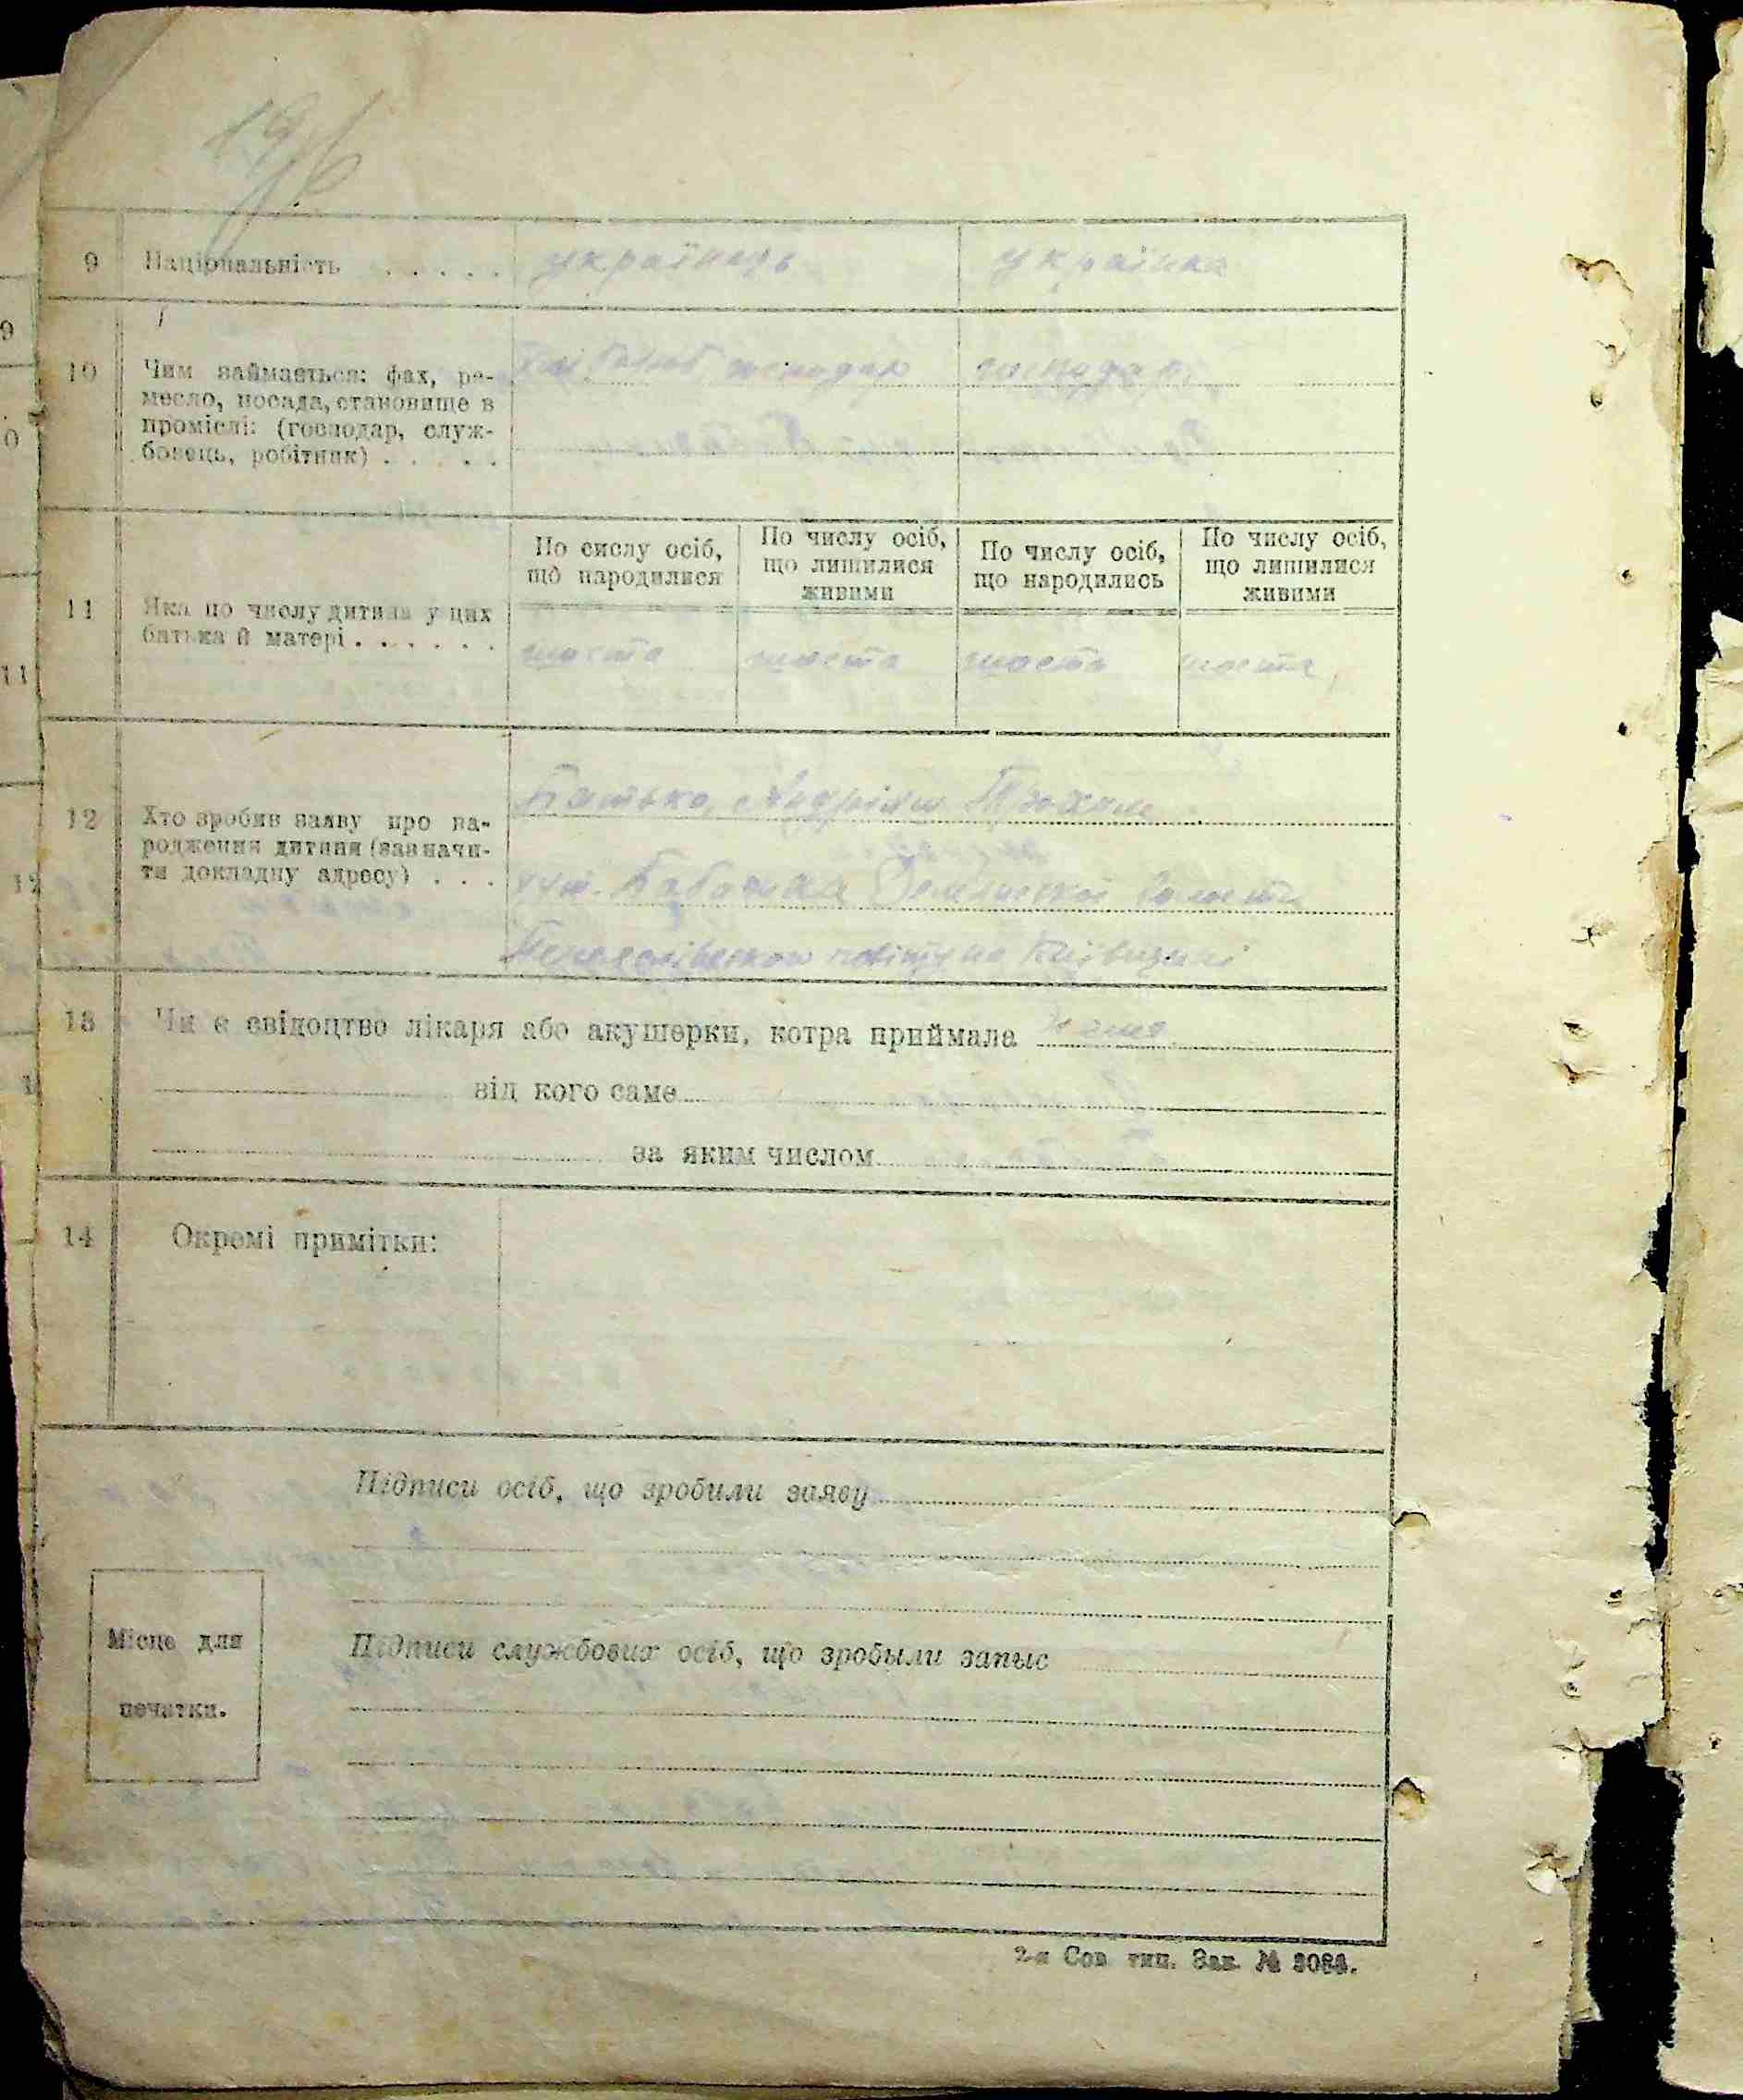 9 Національність . . . . . українець українка
10 Чим займається: фах, ре-
месло, посада, становище в
промислі: (господар, служ-
бовець, робітник) . . . . .
господар господар
По сислу осіб,
що народилися
По числу осіб,
що лишилися
живими
По числу осіб,
що народились
По числу осіб,
що лишилися
живими
11 Яка по числу дитина у цих
батька й матері . . . . . .
шоста шоста шоста шоста
12 Хто зробив заяву про на-
родження дитини (зазначи-
ти докладну адресу) . . .
Батько, Андріяш
хут. волости
повіту на Київщині
13 Чи є свідоцтво лікаря або акушерки, котра приймала нема
від кого саме
за яким числом
14 Окромі примітки:
Підписи осіб, що зробили заяву
Місце для
печатки.
Підписи службових осіб, що зробыли запыс
2-я Сов тип. Зак. № 3084.
9
0
11
12
1